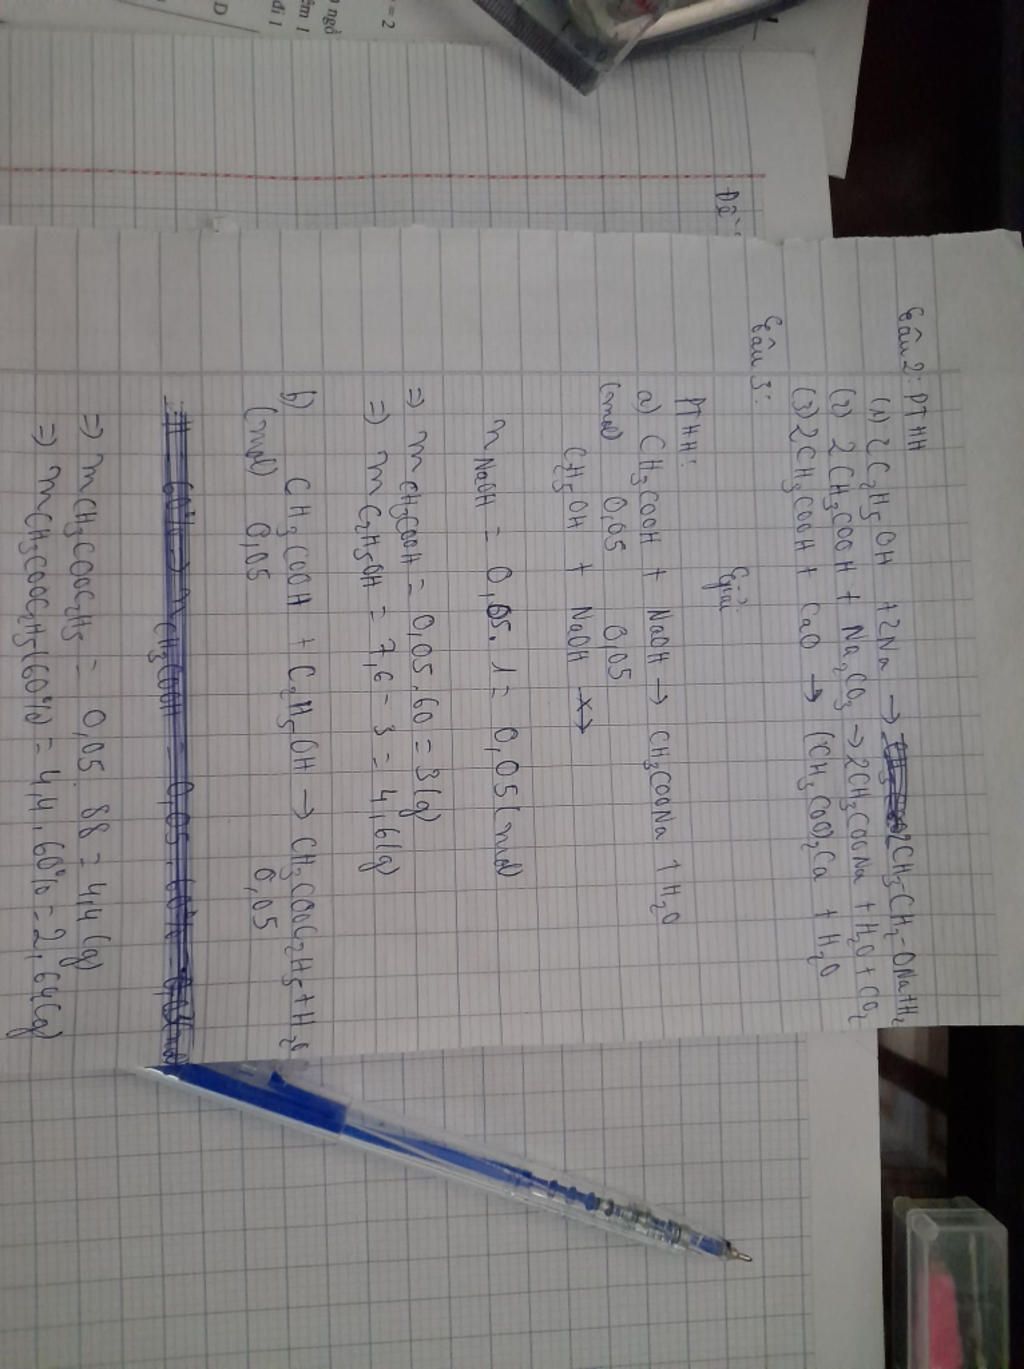 Câu 2: PTHH
(1) 2C₂H₅OH + 2Na → 2CH₃CH₂-ONa+H₂
(2) 2CH₃COOH + Na₂CO₃ → 2CH₃COONa + H₂O + CO₂
(3) 2CH₃COOH + CaO → (CH₃COO)₂Ca + H₂O
Câu 3: Giải
PTHH:
a) CH₃COOH + NaOH → CH₃COONa + H₂O
(mol) 0,05 0,05
C₂H₅OH + NaOH -x→
n NaOH = 0,05.1 = 0,05(mol)
=> m CH₃COOH = 0,05.60 = 3(g)
=> m C₂H₅OH = 7,6 - 3 = 4,6(g)
b) CH₃COOH + C₂H₅OH → CH₃COOC₂H₅ + H₂O
(mol) 0,05 0,05
=> mCH₃COOC₂H₅ = 0,05. 88 = 4,4(g)
=> mCH₃COOC₂H₅(60%) = 4,4.60% = 2,64(g)
Đề:
= 2
D